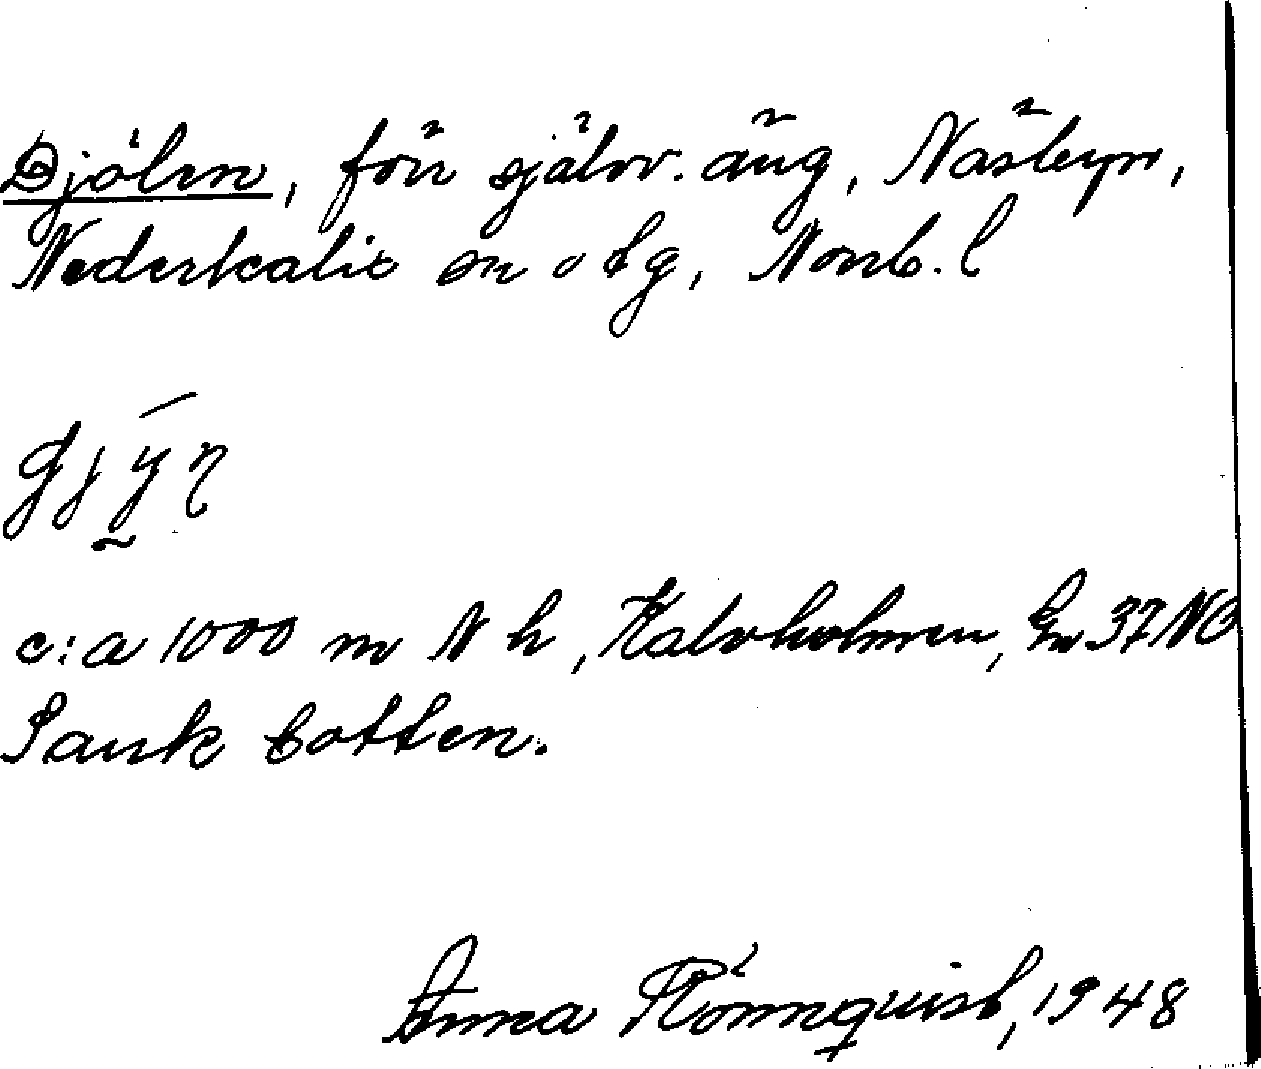 Djölen, för själv. äng, Näsbyn,
Nederkalix sn o tg, Norrb. l
c:a 1000 m N h, Kalvholmen, Gn 37 NO
Sank botten.
Anna Rönnquist, 1948